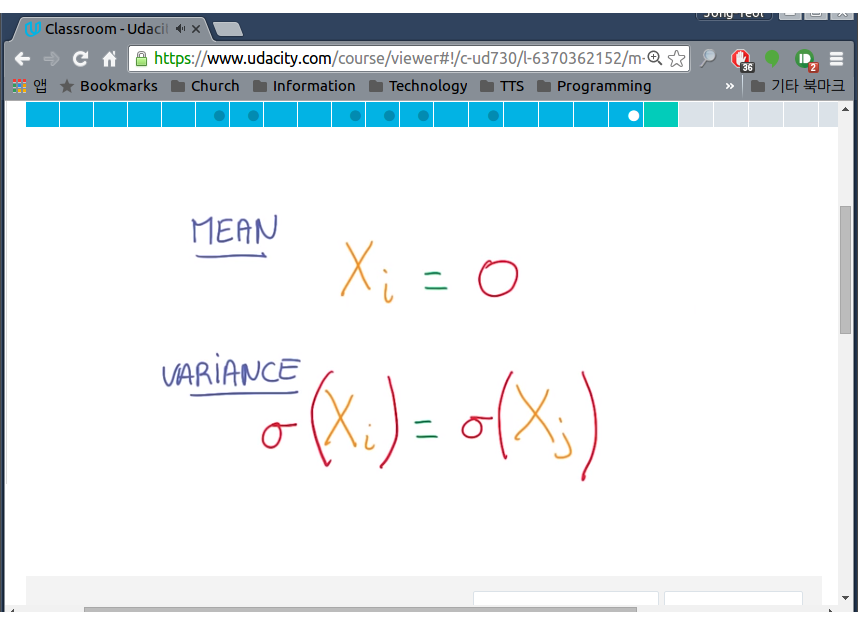 Jong Yeol
Classroom - Udaci
https://www.udacity.com/course/viewer#!/c-ud730/l-6370362152/m-
36
2
앱 Bookmarks Church Information Technology TTS Programming » 기타 북마크
MEAN
Xi = 0
VARIANCE
σ(Xi) = σ(Xj)